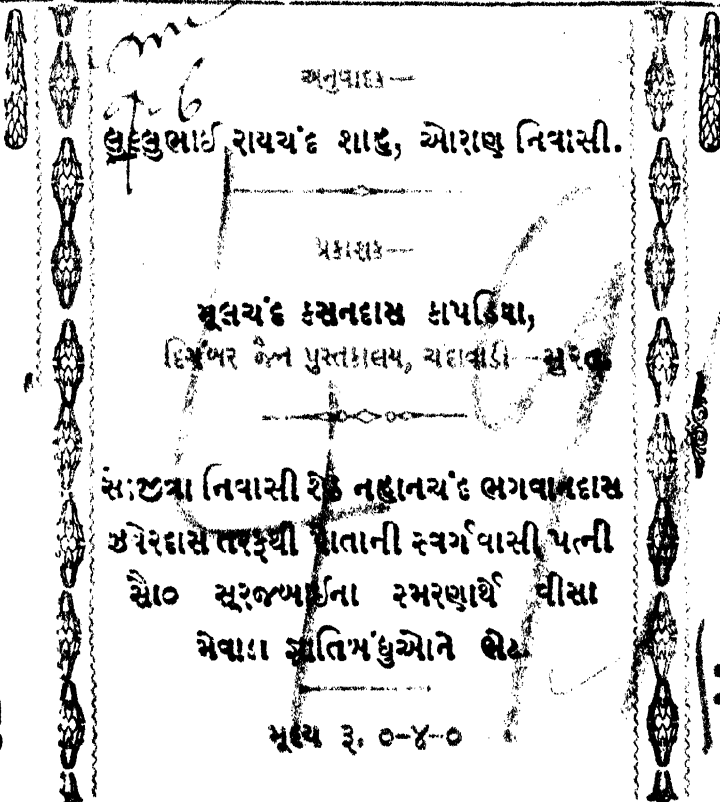 અનુવાદક—
લલ્લુભાઈ રાયચંદ શાહ, ઓરાણ નિવાસી.
પ્રકાશક—
મૂલચંદ કસનદાસ કાપડિયા,
દિગંબર જૈન પુસ્તકાલય, ચંદાવાડી—સુરત.
સોજીત્રા નિવાસી શેઠ નહાનચંદ ભગવાનદાસ
ઝવેરદાસ તરફથી પોતાની સ્વર્ગવાસી પત્ની
સૌ૦ સૂરજબાઈના સ્મરણાર્થે વીસા
મેવાડા જ્ઞાતિબંધુઓને ભેટ.
મૂલ્ય રૂ. ૦-૪-૦